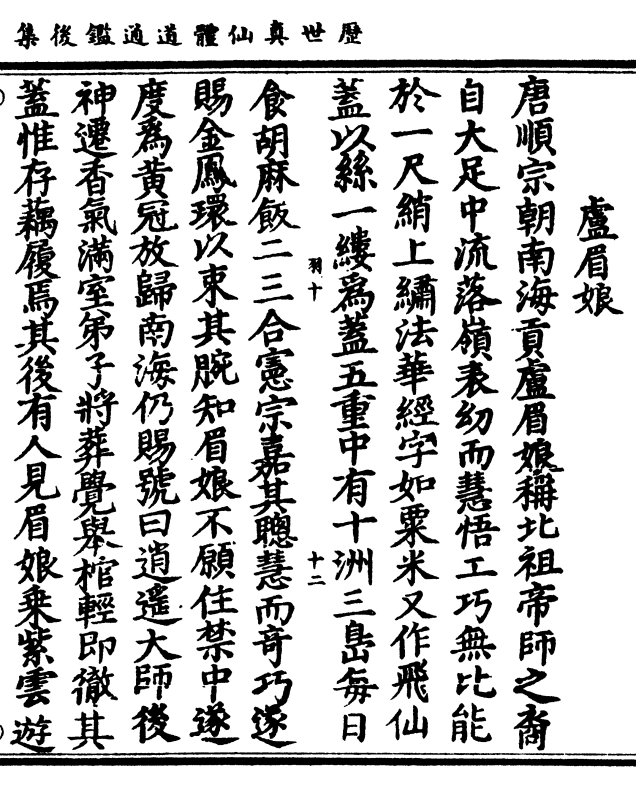 歷世真仙體道通鑑後集
盧眉娘
唐順宗朝南海貢盧眉娘稱北祖帝師之裔
自大足中流落嶺表幼而慧悟工巧無比能
於一尺綃上繡法華經字如粟米又作飛仙
蓋以絲一縷爲蓋五重中有十洲三島每日
羽十
十二
食胡麻飯二三合憲宗嘉其聰慧而奇巧遂
賜金鳳環以束其腕知眉娘不願住禁中遂
度爲黃冠放歸南海仍賜號曰逍遙大師後
神遷香氣滿室弟子將葬覺舉棺輕即徹其
蓋惟存藕履焉其後有人見眉娘乘紫雲遊